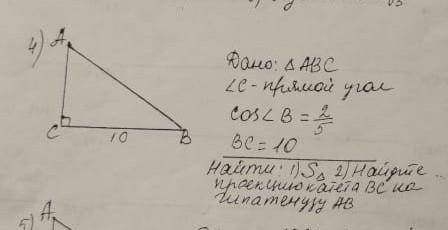 4)
A
C
10
B
Дано: △ABC
∠C - прямой угол
cos∠B = 2/5
BC = 10
Найти: 1) S△ 2) Найдите
проекцию катета BC на
гипатенузу AB
5)
A